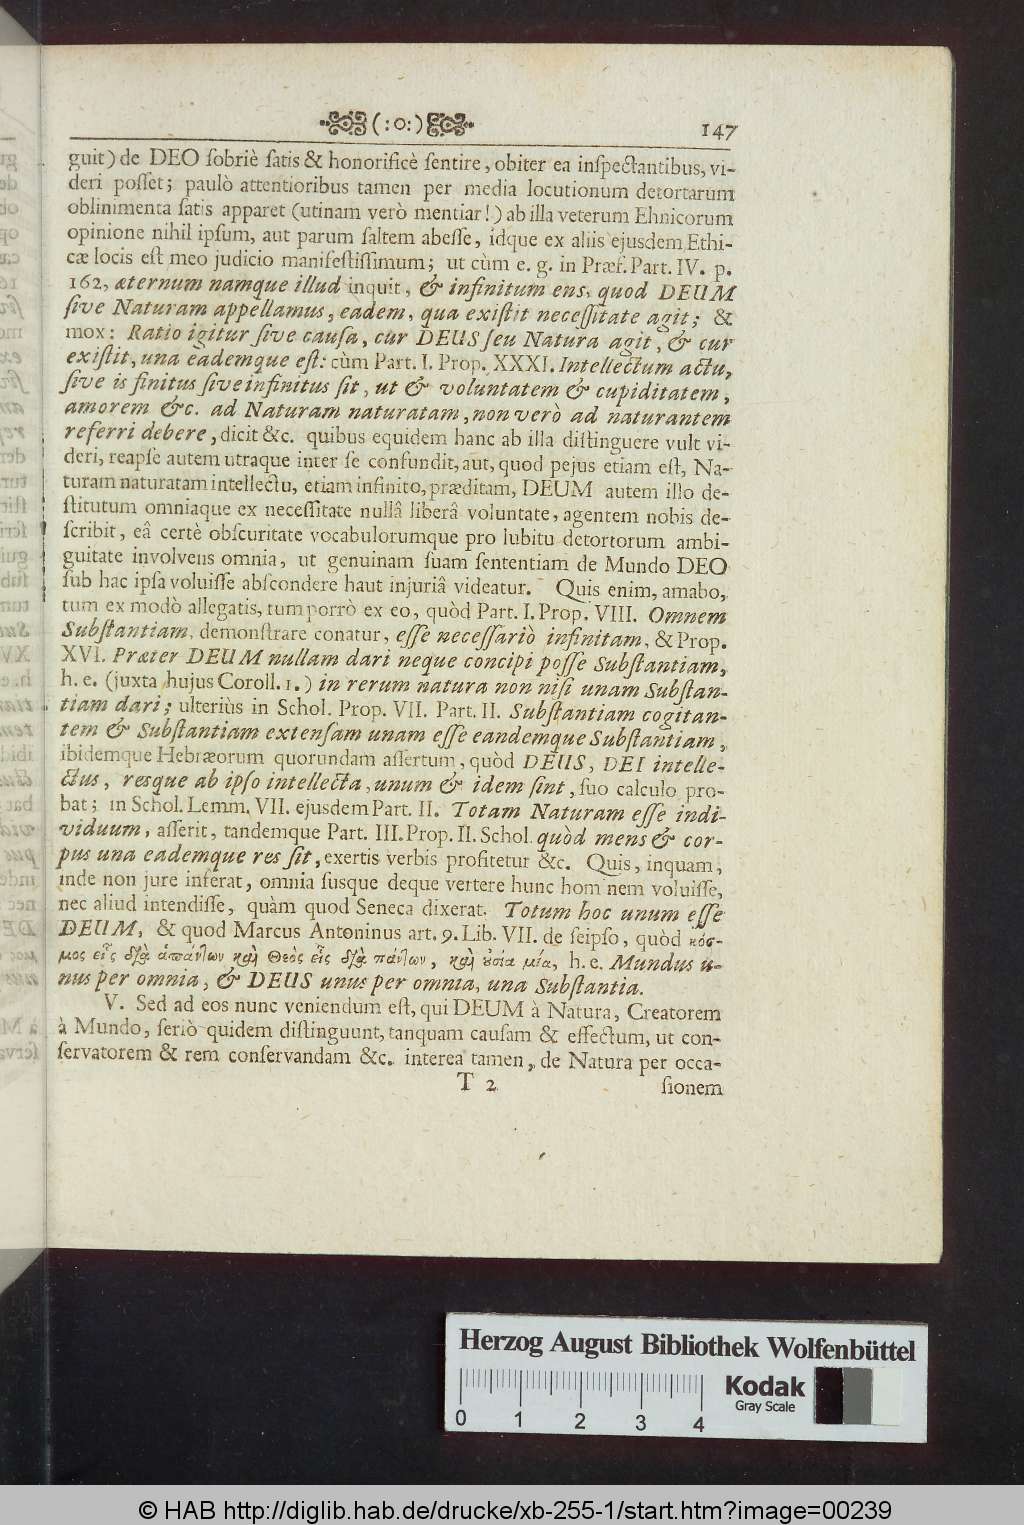 (:o:) 147
guit) de DEO ſobriè ſatis & honorificè ſentire, obiter ea inſpectantibus, vi-
deri poſſet; paulò attentioribus tamen per media locutionum detortarum
oblinimenta ſatis apparet (utinam verò mentiar!) ab illa veterum Ehnicorum
opinione nihil ipſum, aut parum ſaltem abeſſe, idque ex aliis ejusdem Ethi-
cæ locis eſt meo judicio manifeſtiſſimum; ut cùm e. g. in Præf. Part. IV. p.
162, æternum namque illud inquit, & infinitum ens, quod DEUM
ſive Naturam appellamus, eadem, qua exiſtit neceſſitate agit; &
mox: Ratio igitur ſive cauſa, cur DEUS ſeu Natura agit, & cur
exiſtit, una eademque eſt: cùm Part. I. Prop. XXXI. Intellectum actu,
ſive is finitus ſive infinitus ſit, ut & voluntatem & cupiditatem,
amorem &c. ad Naturam naturatam, non verò ad naturantem
referri debere, dicit &c. quibus equidem hanc ab illa diſtinguere vult vi-
deri, reapſe autem utraque inter ſe confundit, aut, quod pejus etiam eſt, Na-
turam naturatam intellectu, etiam infinito, præditam, DEUM autem illo de-
ſtitutum omniaque ex neceſſitate nullâ liberâ voluntate, agentem nobis de-
ſcribit, eâ certè obſcuritate vocabulorumque pro lubitu detortorum ambi-
guitate involvens omnia, ut genuinam ſuam ſententiam de Mundo DEO
ſub hac ipſa voluiſſe abſcondere haut injuriâ videatur. Quis enim, amabo,
tum ex modò allegatis, tum porrò ex eo, quòd Part. I. Prop. VIII. Omnem
Subſtantiam, demonſtrare conatur, eſſe neceſſariò infinitam, & Prop.
XVI. Præter DEUM nullam dari neque concipi poſſe Subſtantiam,
h. e. (juxta hujus Coroll. 1.) in rerum natura non niſi unam Subſtan-
tiam dari; ulteriùs in Schol. Prop. VII. Part. II. Subſtantiam cogitan-
tem & Subſtantiam extenſam unam eſſe eandemque Subſtantiam,
ibidemque Hebræorum quorundam aſſertum, quòd DEUS, DEI intelle-
ctus, resque ab ipſo intellecta, unum & idem ſint, ſuo calculo pro-
bat; in Schol. Lemm. VII. ejusdem Part. II. Totam Naturam eſſe indi-
viduum, aſſerit, tandemque Part. III. Prop. II. Schol. quòd mens & cor-
pus una eademque res ſit, exertis verbis profitetur &c. Quis, inquam,
inde non jure inferat, omnia ſusque deque vertere hunc hom nem voluiſſe,
nec aliud intendiſſe, quàm quod Seneca dixerat. Totum hoc unum eſſe
DEUM, & quod Marcus Antoninus art. 9. Lib. VII. de ſeipſo, quòd κόσ-
μος εἷς διὰ ἁπάντων καὶ Θεὸς εἷς διὰ πάντων, καὶ οὐσία μία, h. e. Mundus u-
nus per omnia, & DEUS unus per omnia, una Subſtantia.
V. Sed ad eos nunc veniendum eſt, qui DEUM à Natura, Creatorem
à Mundo, ſeriò quidem diſtinguunt, tanquam cauſam & effectum, ut con-
ſervatorem & rem conſervandam &c. interea tamen, de Natura per occa-
T 2 ſionem
Herzog August Bibliothek Wolfenbüttel
Kodak
Gray Scale
0 1 2 3 4
© HAB http://diglib.hab.de/drucke/xb-255-1/start.htm?image=00239